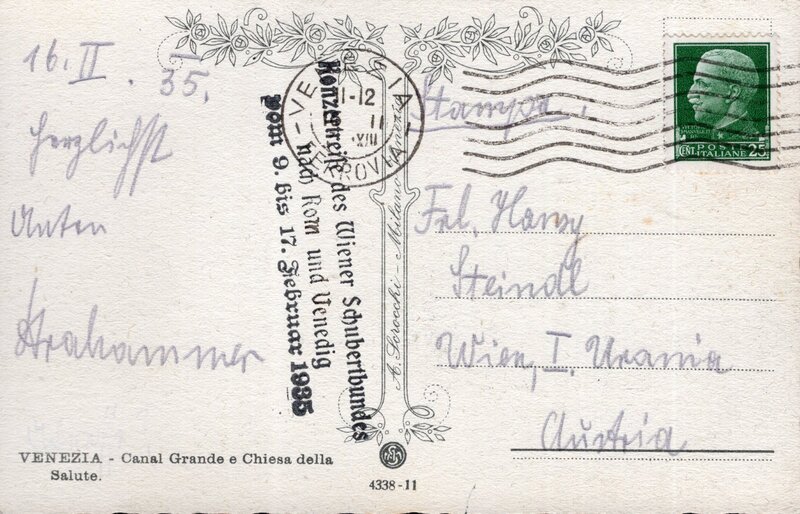 16. II. 35.
Herzlichst
Anton
Strahammer
VENEZIA - Canal Grande e Chiesa della
Salute.
Konzertreise des Wiener Schubertbundes
nach Rom und Venedig
vom 9. bis 17. Februar 1935
VENEZIA
11-12
II
XIII
FERROVIA
A. Scrocchi - Milano
4338-11
Stampe.
POSTE
ITALIANE
CENT. 25
Frl. Hansy
Steindl
Wien, I. Urania
Austria